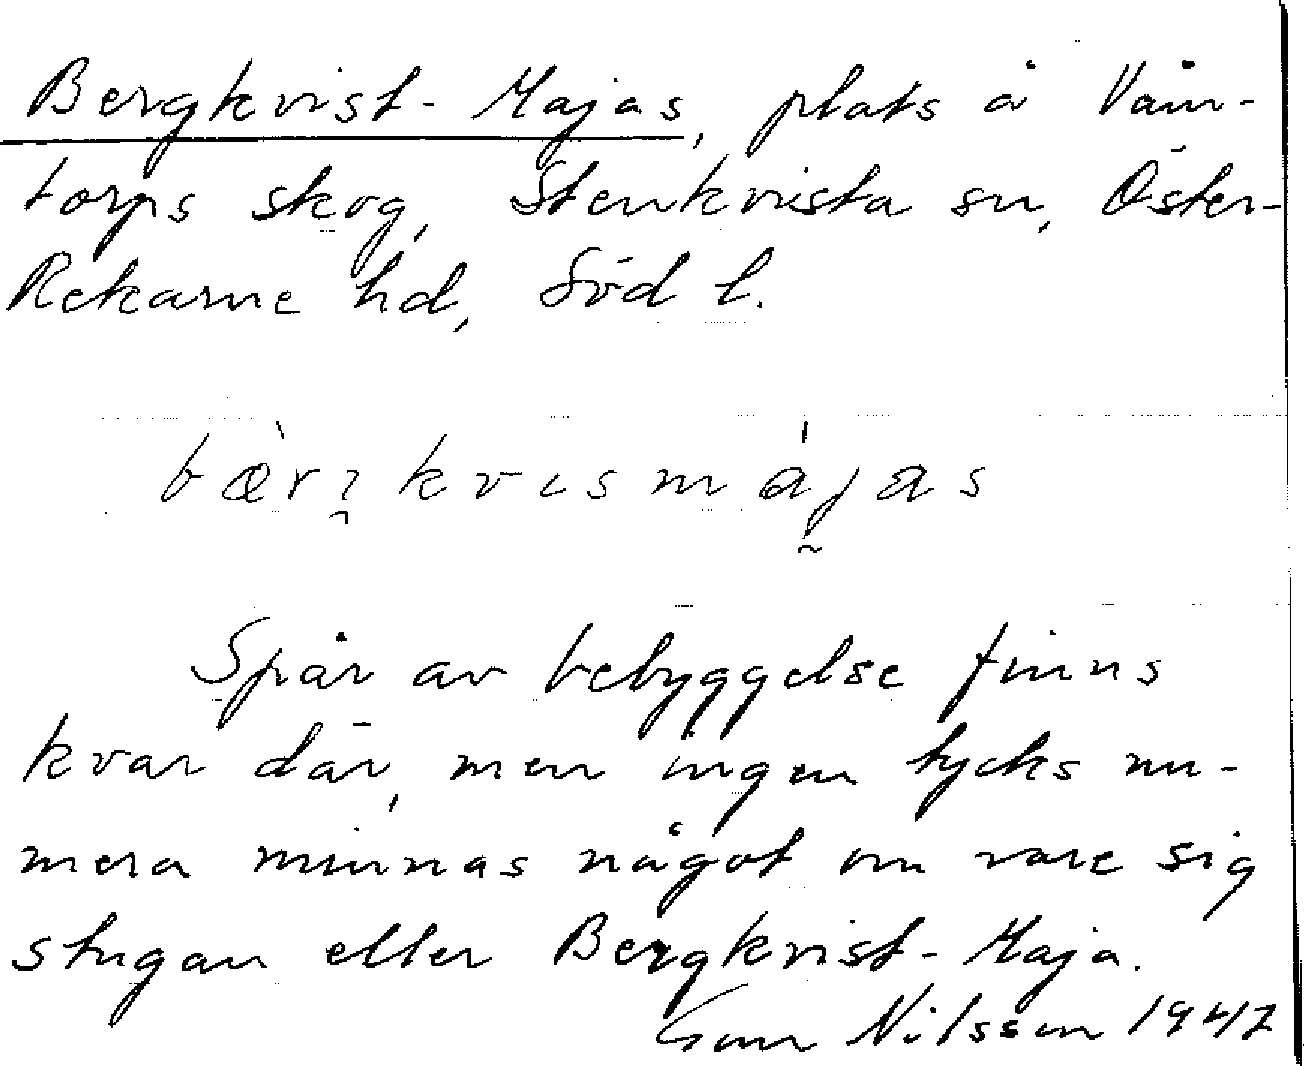 Bergkvist-Majas, plats å Våm-
torps skog, Stenkvista sn, Öster-
Rekarne hd, Söd l.
kvismájas
Spår av bebyggelse finns
kvar där, men ingen tycks nu-
mera minnas något om vare sig
stugan eller Bergkvist-Maja.
Nilsson 1947